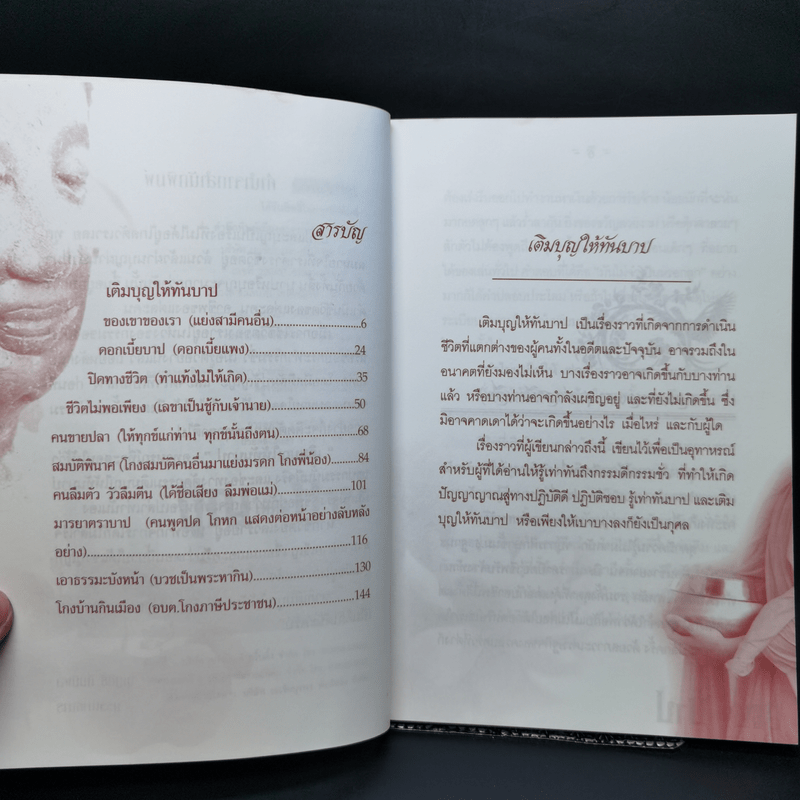 สารบัญ
เติมบุญให้ทันบาป
ของเขาของเรา (แย่งสามีคนอื่น)..........................6
ดอกเบี้ยบาป (ดอกเบี้ยแพง)..............................24
ปิดทางชีวิต (ทำแท้งไม่ให้เกิด)..........................35
ชีวิตไม่พอเพียง (เลขาเป็นชู้กับเจ้านาย)...................50
คนขายปลา (ให้ทุกข์แก่ท่าน ทุกข์นั้นถึงตน)................68
สมบัติพินาศ (โกงสมบัติคนอื่นมาแย่งมรดก โกงพี่น้อง).......84
คนลืมตัว วัวลืมตีน (ได้ชื่อเสียง ลืมพ่อแม่)...............101
มารยาตราบาป (คนพูดปด โกหก แสดงต่อหน้าอย่างลับหลัง
อย่าง)..................................................116
เอาธรรมะบังหน้า (บวชเป็นพระทากิน).....................130
โกงบ้านกินเมือง (อบต.โกงภาษีประชาชน)..................144
เติมบุญให้ทันบาป
เติมบุญให้ทันบาป เป็นเรื่องราวที่เกิดจากการดำเนิน
ชีวิตที่แตกต่างของผู้คนทั้งในอดีตและปัจจุบัน อาจรวมถึงใน
อนาคตที่ยังมองไม่เห็น บางเรื่องราวอาจเกิดขึ้นกับบางท่าน
แล้ว หรือบางท่านอาจกำลังเผชิญอยู่ และที่ยังไม่เกิดขึ้น ซึ่ง
มิอาจคาดเดาได้ว่าจะเกิดขึ้นอย่างไร เมื่อไหร่ และกับผู้ใด
เรื่องราวที่ผู้เขียนกล่าวถึงนี้ เขียนไว้เพื่อเป็นอุทาหรณ์
สำหรับผู้ที่ได้อ่านให้รู้เท่าทันถึงกรรมดีกรรมชั่ว ที่ทำให้เกิด
ปัญญาญาณสู่ทางปฏิบัติดี ปฏิบัติชอบ รู้เท่าทันบาป และเติม
บุญให้ทันบาป หรือเพียงให้เบาบางลงก็ยังเป็นกุศล